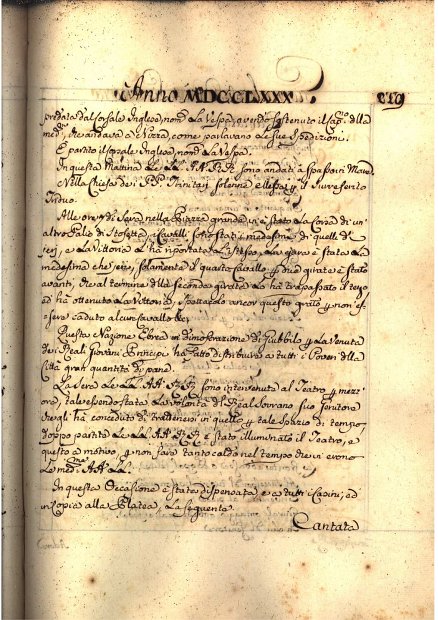 Anno MDCCLXXX.
219
predata dal Corsale Inglese nom. La Vespa, avendo sostenuto il Cap.no della
med. che andava a Nizza, come parlavano le sue Spedizioni.
È partito il Corsale Inglese nom. La Vespa.
In questa Mattina Le LL. AA. RR. sono andati a spasso in Mare
Nella Chiesa dei PP. Trinitari solenne Messa, p. il Suvveserito
Triduo.
Alle ore 7 di Sera nella Piazza grande vi è stato la Corsa di un
altro Palio di Stoffetta, i Cavalli sono stati i medesimi di quelle di
jeri, e La Vittoria L'ha riportata L'istesso, La gara è stata La
medesima che jeri, solamente il quarto Cavallo p. due girate è stato
avanti, che al termine della seconda girata La ha trapassato il terzo
ed ha ottenuto La Vittoria, Spettacolo ancor questo grato p. non es-
sere caduto alcun Cavallo
Questa Nazione Ebrea in dimostrazione di Giubbilo p. La Venuta
dei Reali Giovani Principi ha fatto distribuire a tutti i Poveri della
Città gran quantità di pane.
La Sera Le LL. AA. RR. sono intervenute al Teatro p. mezz'
ora, tale essendo stata La volontà del Real Sovrano, suo Genitore
che gli ha conceduto di trattenersi in quello p. tale spazio di tempo
doppo partite Le LL. AA. RR. è stato illuminato il Teatro, e
questo a motivo, p. non fare tanto caldo nel tempo che vi erono
Le med.me AA. LL.
In questa Occasione è stata dispensata e a tutti i Casini, ed
in Copia alla Platea, La seguente.
Cantata